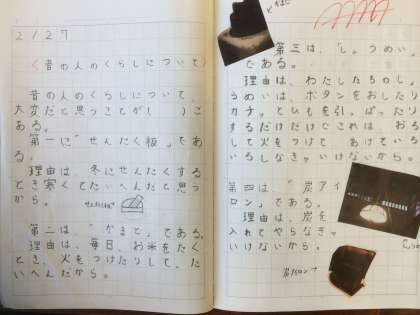 2/27
く昔の人のくらしについて〉
昔の人のくらしについて、
大変だと思うことが( )こ
ある。
第一に"せんたく板"であ
る。
理由は、冬にせんたくする
とき寒くてたいへんだと思っ
から。
せんたくいた
第二は"かまど"である。
理由は、毎日、お米をたく
とき、火をつけたりして、た
いへんだから。
第三は、"しょうめい"
である。
理由は、わたしたちのしょ
うめいは、ボタンをおしたり
カチッとひもを引っぱったり
するだけだけどこれは
して火をつけて あけている
いるしなきゃいけないから。
第四は、"炭アイ
ロン"である。
理由は、炭を
入れてやらなきゃ
いけないから。
炭アイロン↑